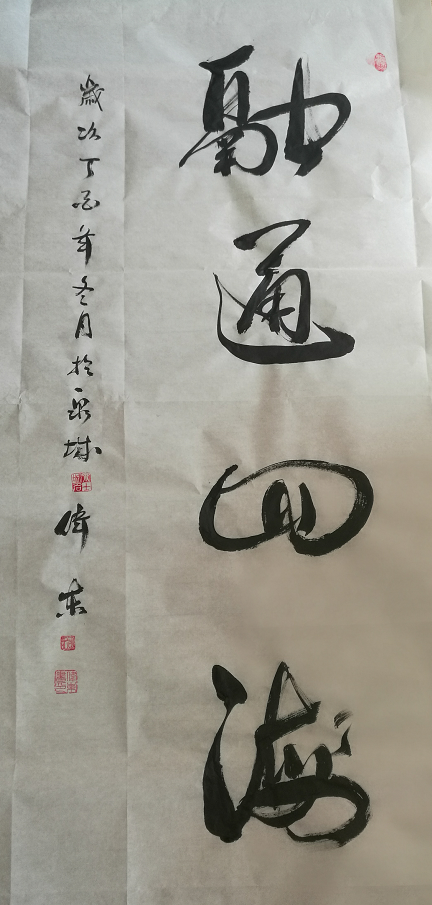 融通四海
歲次丁酉年冬月於泉城
偉東